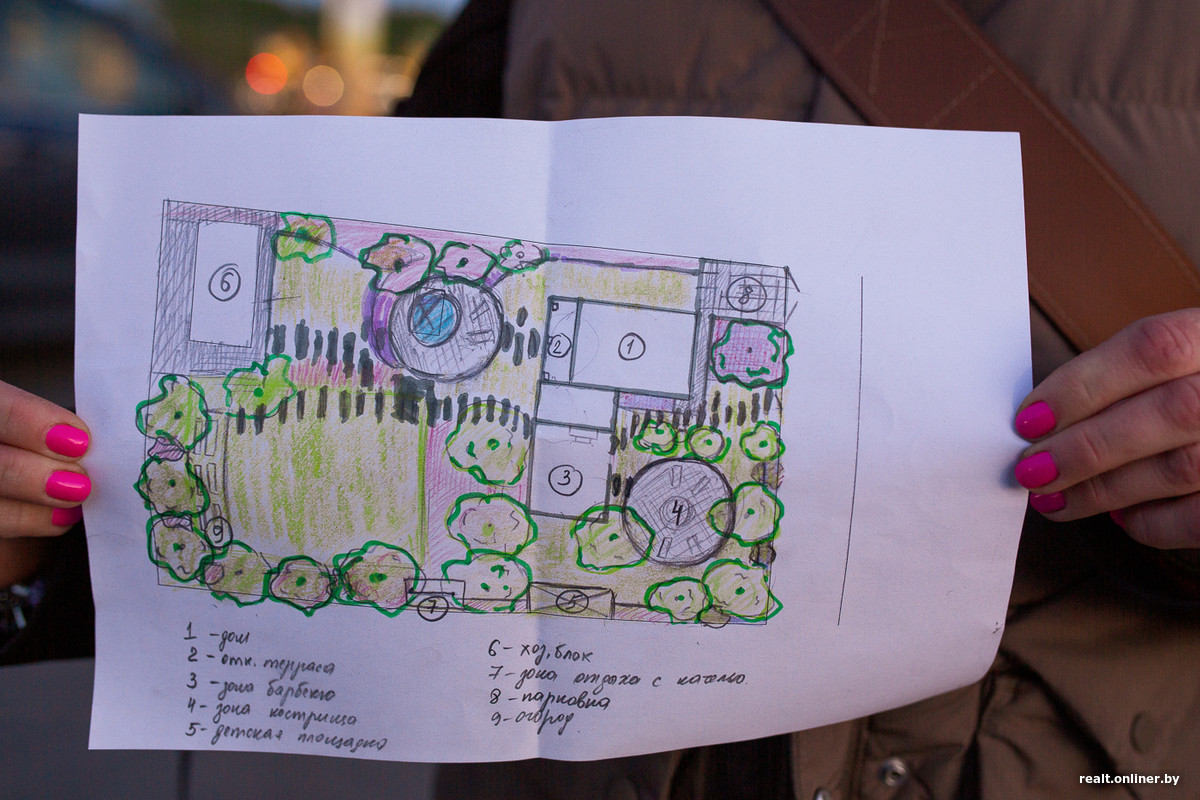 6
8
2
1
3
4
9
7
5
1 - дом
2 - отк. терраса
3 - зона барбекю
4 - зона кострища
5 - детская площадка
6 - хоз. блок
7 - зона отдыха с качелью
8 - парковка
9 - огород
realt.onliner.by